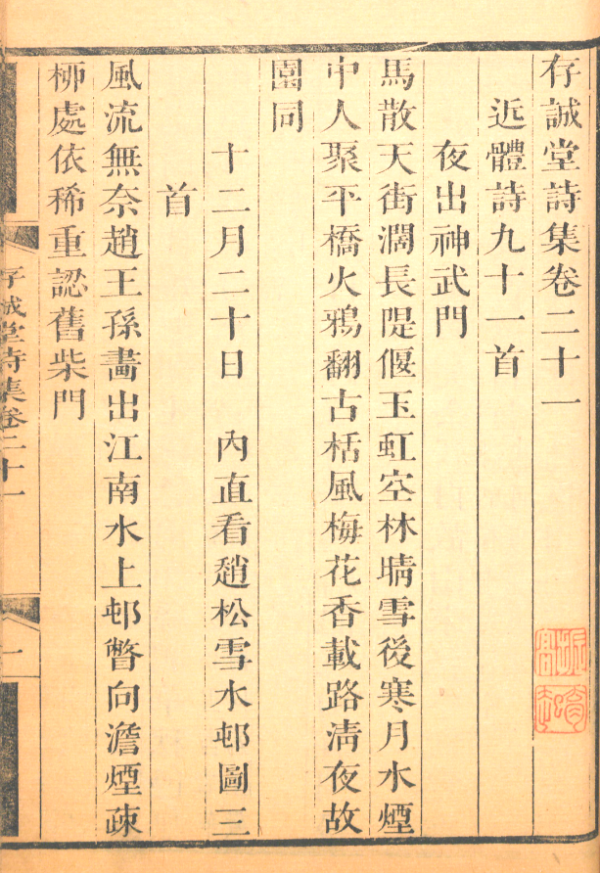 存誠堂詩集卷二十一
近體詩九十一首
夜出神武門
馬散天街濶長隄偃玉虹空林晴雪後寒月水煙
中人聚平橋火鴉翻古栝風梅花香載路清夜故
園同
十二月二十日　內直看趙松雪水邨圖三
首
風流無奈趙王孫畵出江南水上邨瞥向澹煙疎
栁處依稀重認舊柴門
存誠堂詩集卷二十一
一